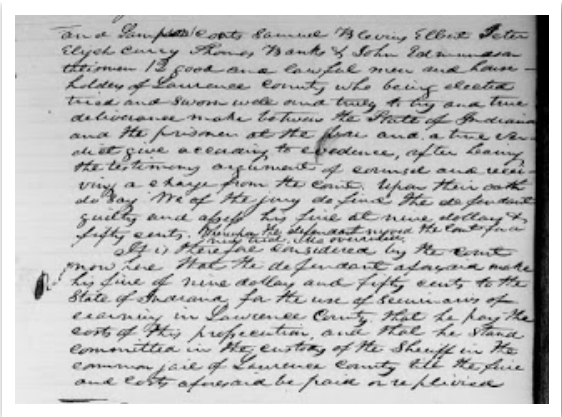 and Coats Samuel Blevins Elbert Jeter
Elijah Curry Thomas Banks & John Edmundson
12 good and lawful men and house-
holders of Lawrence County who being elected
tried and sworn well and truly to try and true
deliverance make between the State of Indiana
and the prisoner at the bar and a true ver-
dict give according to evidence, after hearing
the testimony argument of counsel and recei-
ving a charge from the Court. Upon their oath
do say We of the jury do find the defendant
guilty and assess his fine at nine dollars &
fifty cents. Whereupon the defendant moved the Court for a
new trial. overruled.
It is therefore considered by the court
now here that the defendant aforesaid make
his fine of nine dollars and fifty cents to the
State of Indiana for the use of Seminaries of
learning in Lawrence County. that he pay the
costs of this prosecution, and that he stand
committed in the custody of the Sheriff in the
common jail of Lawrence County till the fine
and costs aforesaid be paid or replevied